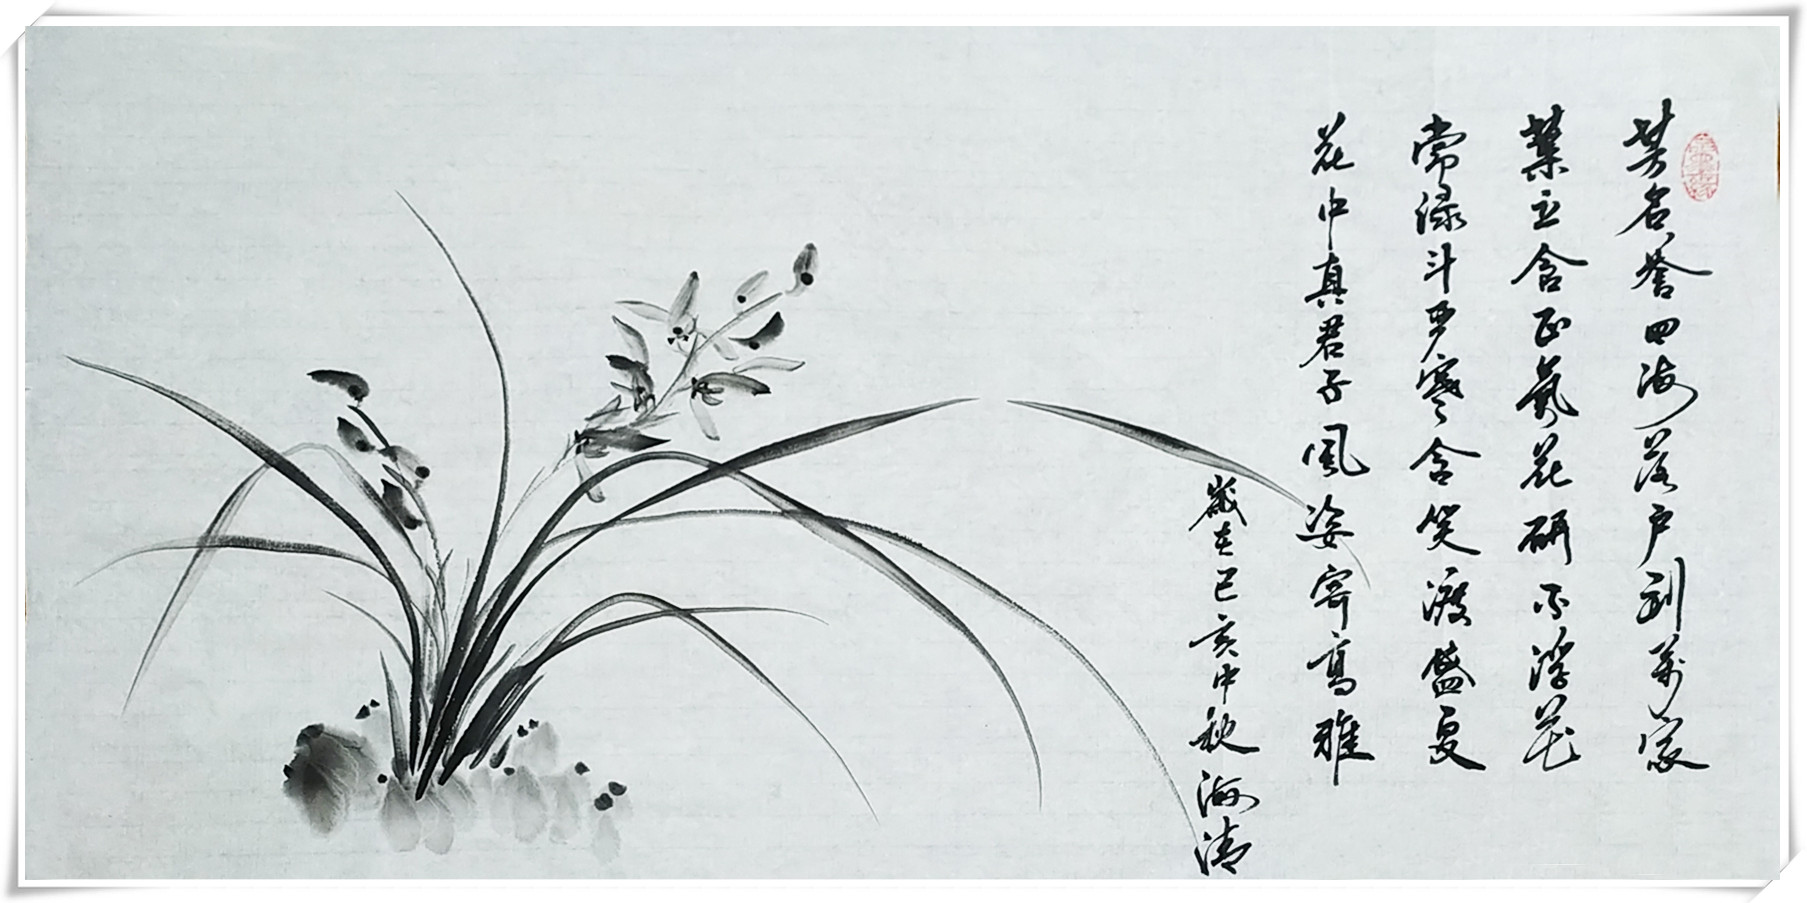 芳名誉四海落户到萬家
葉立含正氣花研不浮花
常绿斗严寒含笑渡盛夏
花中真君子風姿寄高雅
歲在己亥中秋海清